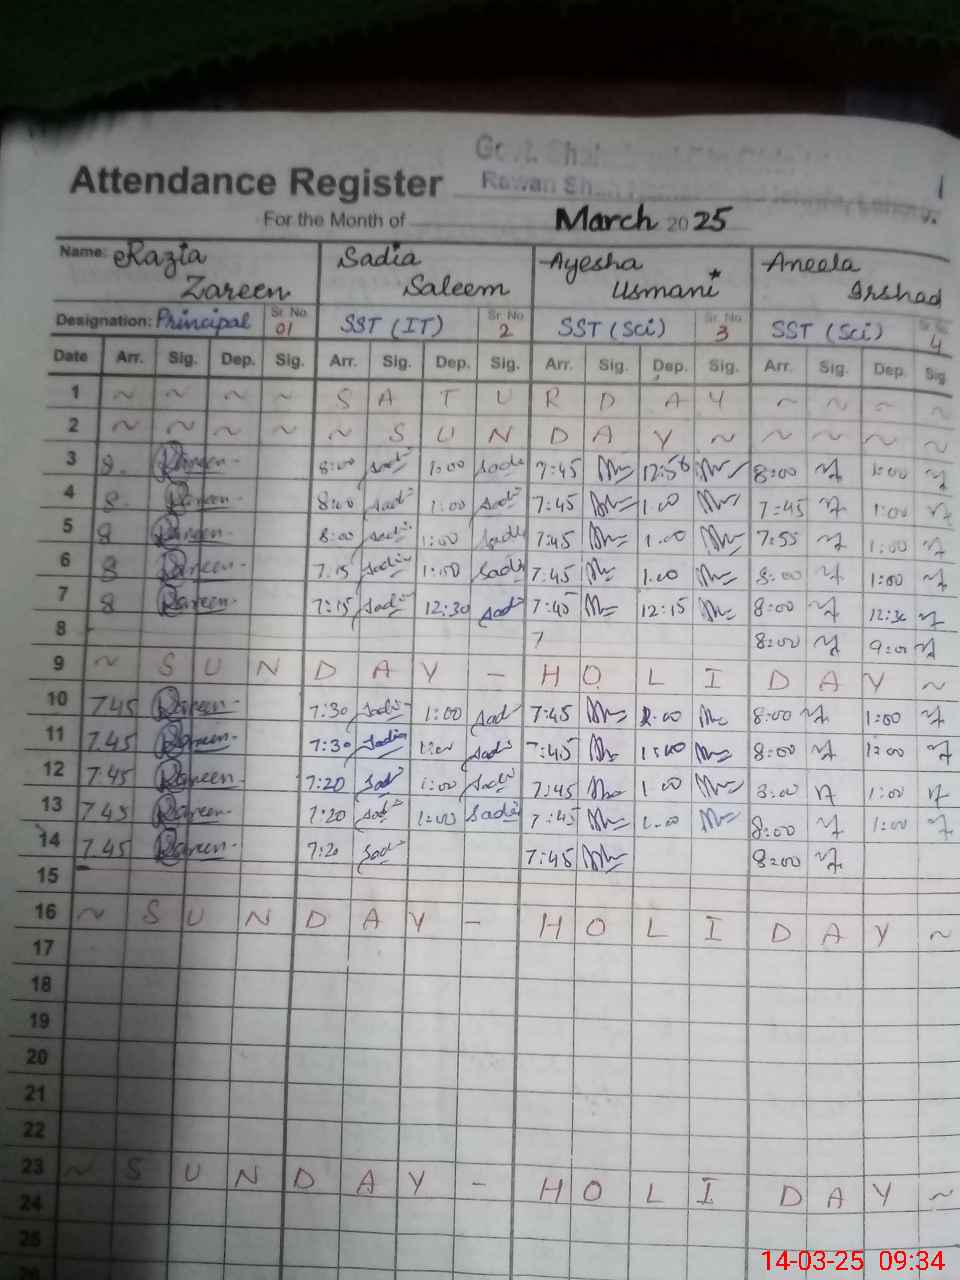 Govt. Shah
Attendance Register Rawan Sh
1
For the Month of March 2025
Name: Razia Zareen Sadia Saleem Ayesha Usmani Aneela Arshad
Designation: Principal Sr. No. 01 SST (IT) Sr. No. 2 SST (Sci) Sr. No. 3 SST (Sci) 4
Date Arr. Sig. Dep. Sig. Arr. Sig. Dep. Sig. Arr. Sig. Dep. Sig. Arr. Sig. Dep. Sig.
1 ~ ~ ~ ~ S A T U R D A Y ~ ~ ~ ~
2 ~ ~ ~ ~ ~ S U N D A Y ~ ~ ~ ~ ~
3 8. Zareen 8:00 Sadi 1:00 Sadi 7:45 12:58 8:00 1:00
4 8. Zareen 8:00 Sadi 1:00 Sadi 7:45 1.00 7:45 1:00
5 8 Zareen 8:00 Sadi 1:00 Sadi 7:45 1.00 7:55 1:00
6 8 Zareen 7:15 Sadi Sadi 7:45 1.00 8:00 1:00
7 8 Zareen 7:15 Sadi 12:30 Sadi 7:45 12:15 8:00 12:30
8 7 8:00 9:00
9 ~ S U N D A Y - H O L I D A Y ~
10 7.45 Zareen 7:30 Sadi 1:00 Sad 7:45 8:00 1:00
11 7.45 Zareen 7:30 Sadia 1:00 Sadi 7:45 1:00 8:00
12 7:45 Zareen 7:20 Sad 1:00 Sadi 7:45 1.00 8:00 1:00
13 7.45 Zareen 7:20 Sad 1:00 Sadi 7:45 1.00 8:00 1:00
14 7.45 Zareen 7:20 Sad 7:45 8:00
15
16 ~ S U N D A Y - H O L I D A Y ~
17
18
19
20
21
22
23 ~ S U N D A Y - H O L I D A Y ~
24
25
26
14-03-25 09:34